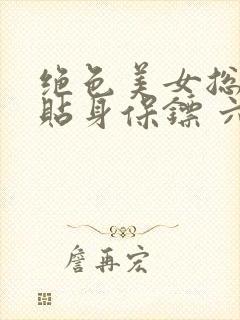 绝色美女总
贴身保镖 六
詹再宏